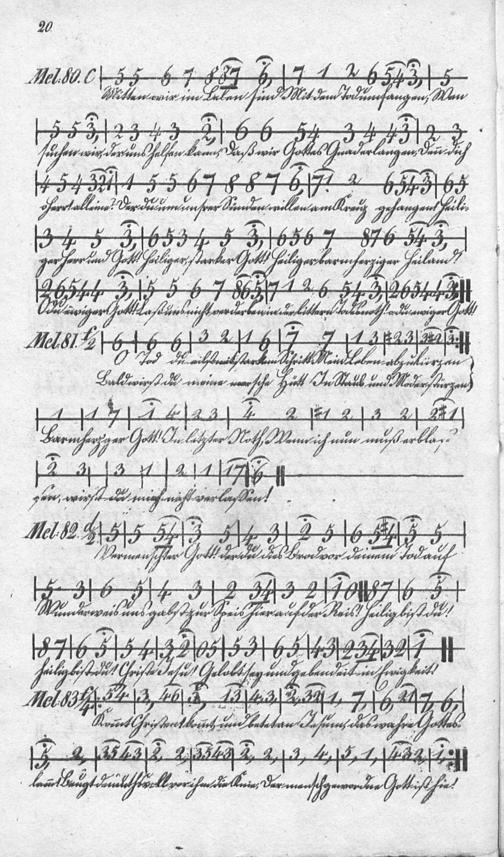 20.
Mel. 80. C 5 5 6 7 8 8 7 6, 7 1 2 6 5 4 3, 5
Mitten wir im Leben sind Mit dem Tod umfangen, Wen
5 5 3, 2 3 4 3 2, 6 6 5 4 3 4 4 3, 2 3
suchen wir, der uns helfen kann, Daß wir Gottes Gnad erlangen, Den dich
4 5 4 3 2 1 1 5 5 6 7 8 8 7 6, 7. 2 6 5 4 3 6 5
Herr alleine? Der du um unsrer Sünden willen am Kreuz gehangen Heili-
3 4 5 3, 6 5 3 4 5 3, 6 5 6 7 8 7 6 5 4 3,
ger Herr und Gott! Heiliger, starker Gott! Heiliger barmherziger Heiland!
2 6 5 4 4 3, 5 5 6 7 8 6 5, 7 1 2 6 5 4 3, 2 6 5 4 4 3,
O du ewiger Gott! Laß uns nicht in der bittern Todesnoth! du ewiger Gott!
Mel. 81. 6 6 6 3 2 1 6 7 7 1 3 2 3 3 2 3.
O Tod du mit Mein Leben abzukürzen
Bald wirst du meine Hütt In Staub und Moder stürzen
1 1 7 1 4 2 3 4. 2 1 2 3 2 2 1
Barmherzger Gott! In letzter Noth, Wenn ich nun muß erblas-
2 3 3 1 2 1 1 7 6
sen, wirst du mich nicht verlassen!
Mel. 82. 5 5 5 4 3 5 4 3 2 5 6 5 4 5 5
Vermenschter Gott der du dies Brod vor deinem Tod auf
5 3 6 5 4 3 2 3 4 3 2 1 0 8 7 6 5
Wunderweis uns gabst zur Speis hier auf der Reis! Heilig bist du!
8 7 6 5 5 4 3 2 0 5 5 3 6 5 4 3 2 3 4 3 2 1
Heilig bist du! Christe Jesu! Gelobt sey und gebenedeit in Ewigkeit!
Mel. 83 5 4 3, 4 6 5, 1 3 4 3, 2 3 2 1, 7, 6, 2 1 7, 6,
Kommt Christen kommt, und betet an Jesum, das wahre Gottes-
3, 2, 3 5 4 3 2, 2, 3 5 4 3 2, 2, 3, 4, 5, 1, 4 3 2, 1,
lamm! Beugt vor ihm die Knie, Der menschgewordne Gott ist hie!